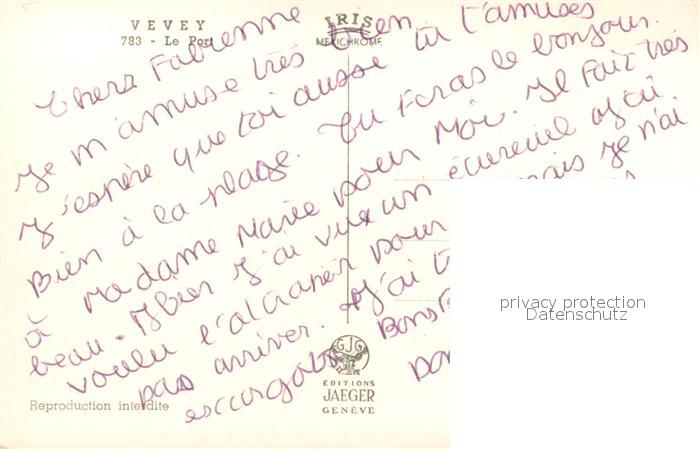 VEVEY
783 - Le Port
IRIS
MEXICHROME
Chere Fabienne
Je m'amuse très bien
J'espère que toi aussi tu t'amuses
Bien à la plage. Tu feras le bonjour
à Madame Marie pour Moi. Il fait très
beau. Hier J'ai vu un écureuil et j'ai
voulu l'atraper pour mais Je n'ai
pas arriver. J'ai
escargots Bons
GJG
EDITIONS
JAEGER
GENÈVE
Reproduction interdite
privacy protection
Datenschutz